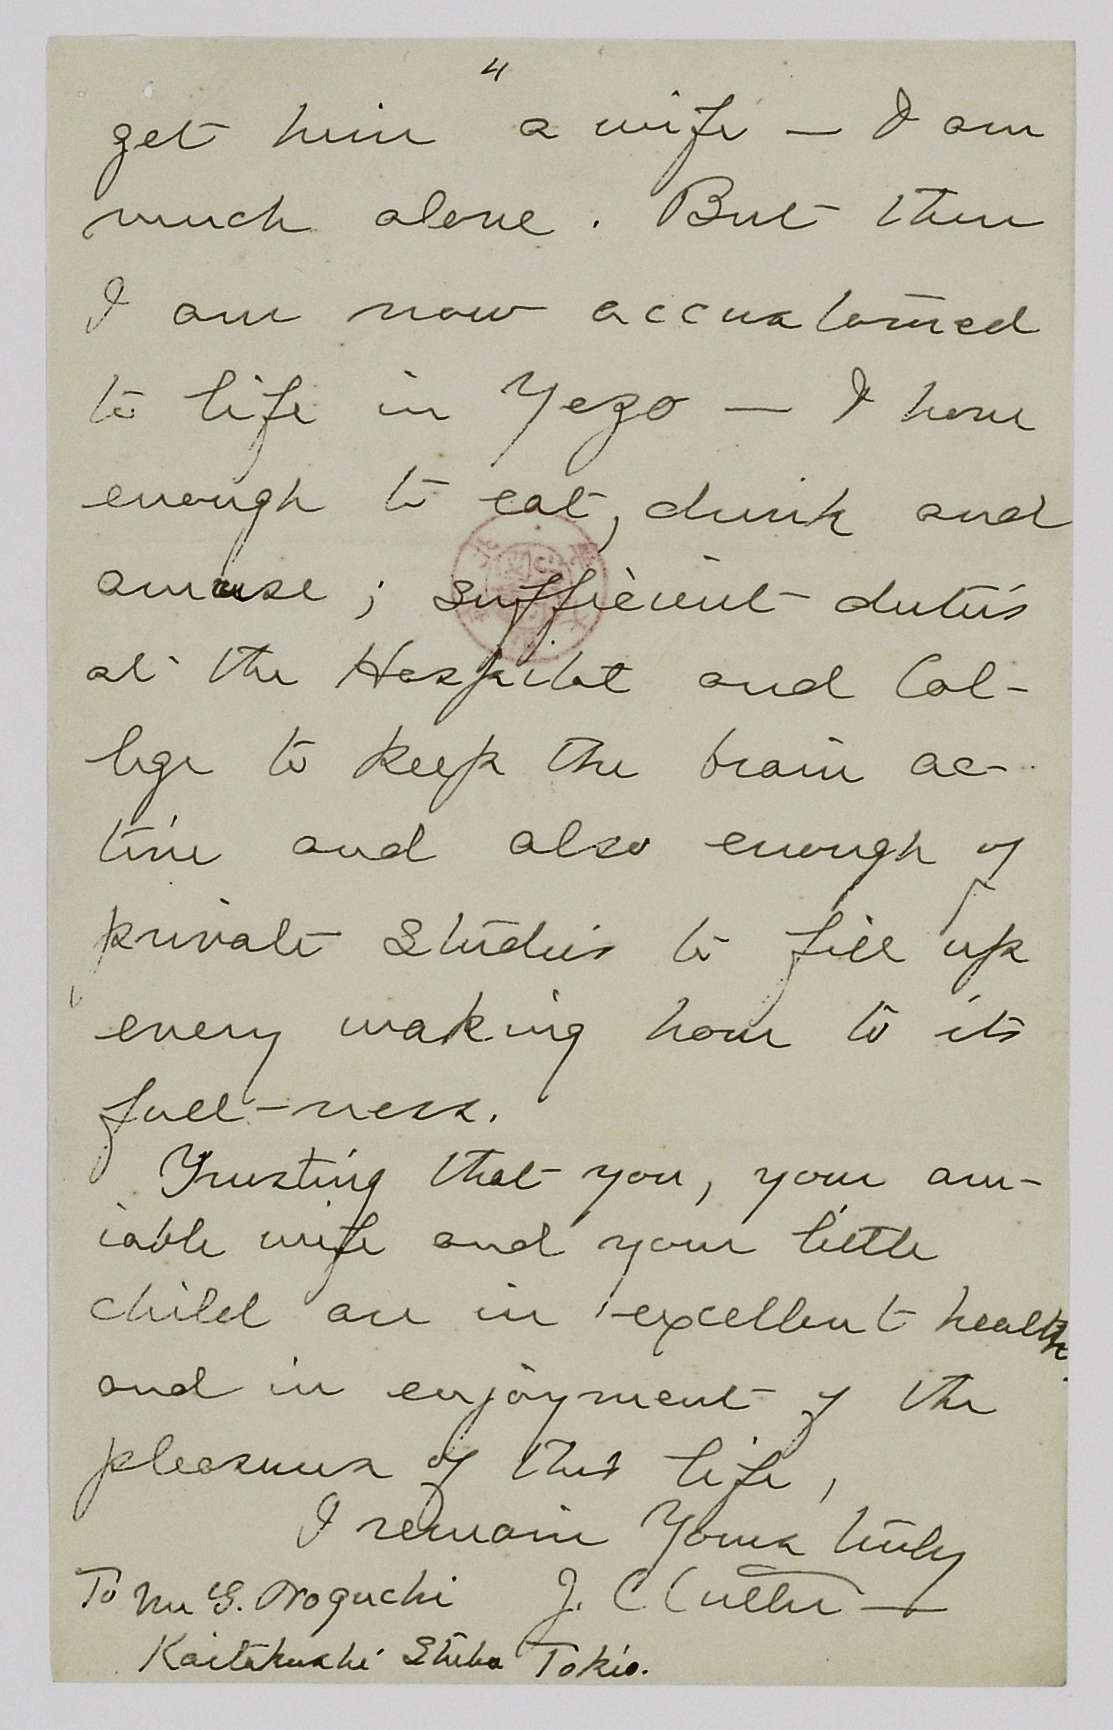 4
get him a wife — I am
much alone. But then
I am now accustomed
to life in Yezo — I have
enough to eat, drink and
amuse; sufficient duties
at the Hospital and Col-
lege to keep the brain ac-
tive and also enough of
private studies to fill up
every waking hour to its
full-ness.
Trusting that you, your am-
iable wife and your little
child are in excellent health
and in enjoyment of the
pleasures of this life,
I remain Yours truly
J. C Cutter —
To Mr G. Noguchi
Kaitakushi Shiba Tokio.